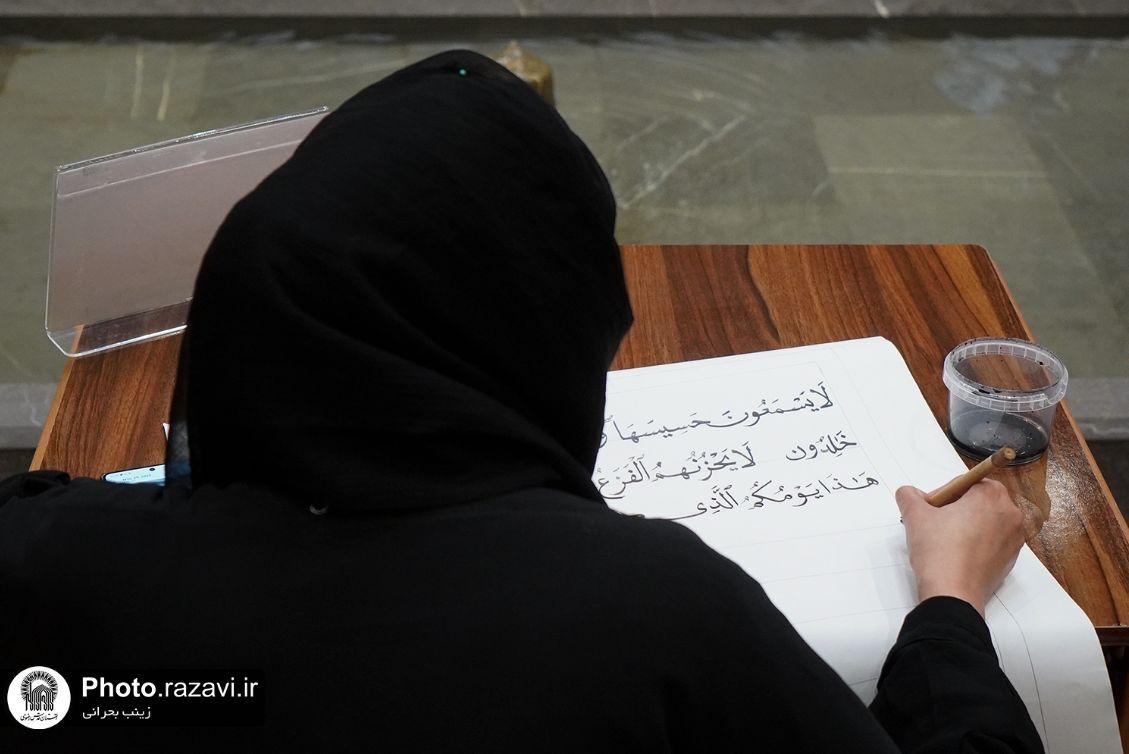 لَا يَسْمَعُونَ حَسِيسَهَا
خَٰلِدُونَ لَا يَحْزُنُهُمُ ٱلْفَزَعُ
هَٰذَا يَوْمُكُمُ ٱلَّذِى
Photo.razavi.ir
زینب بحرانی